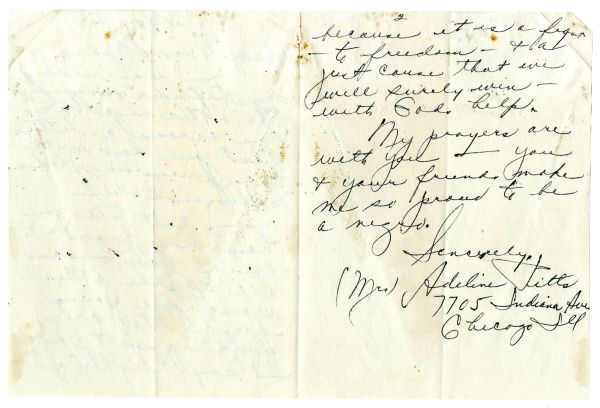 2
because it is a fight
- to freedom - & a
just cause that we
will surely win -
with Gods help.
My prayers are
with you - you
& your friends make
me so proud to be
a negro.
Sincerely,
(Mrs) Adeline Pitts
7705 Indiana Ave
Chicago Ill